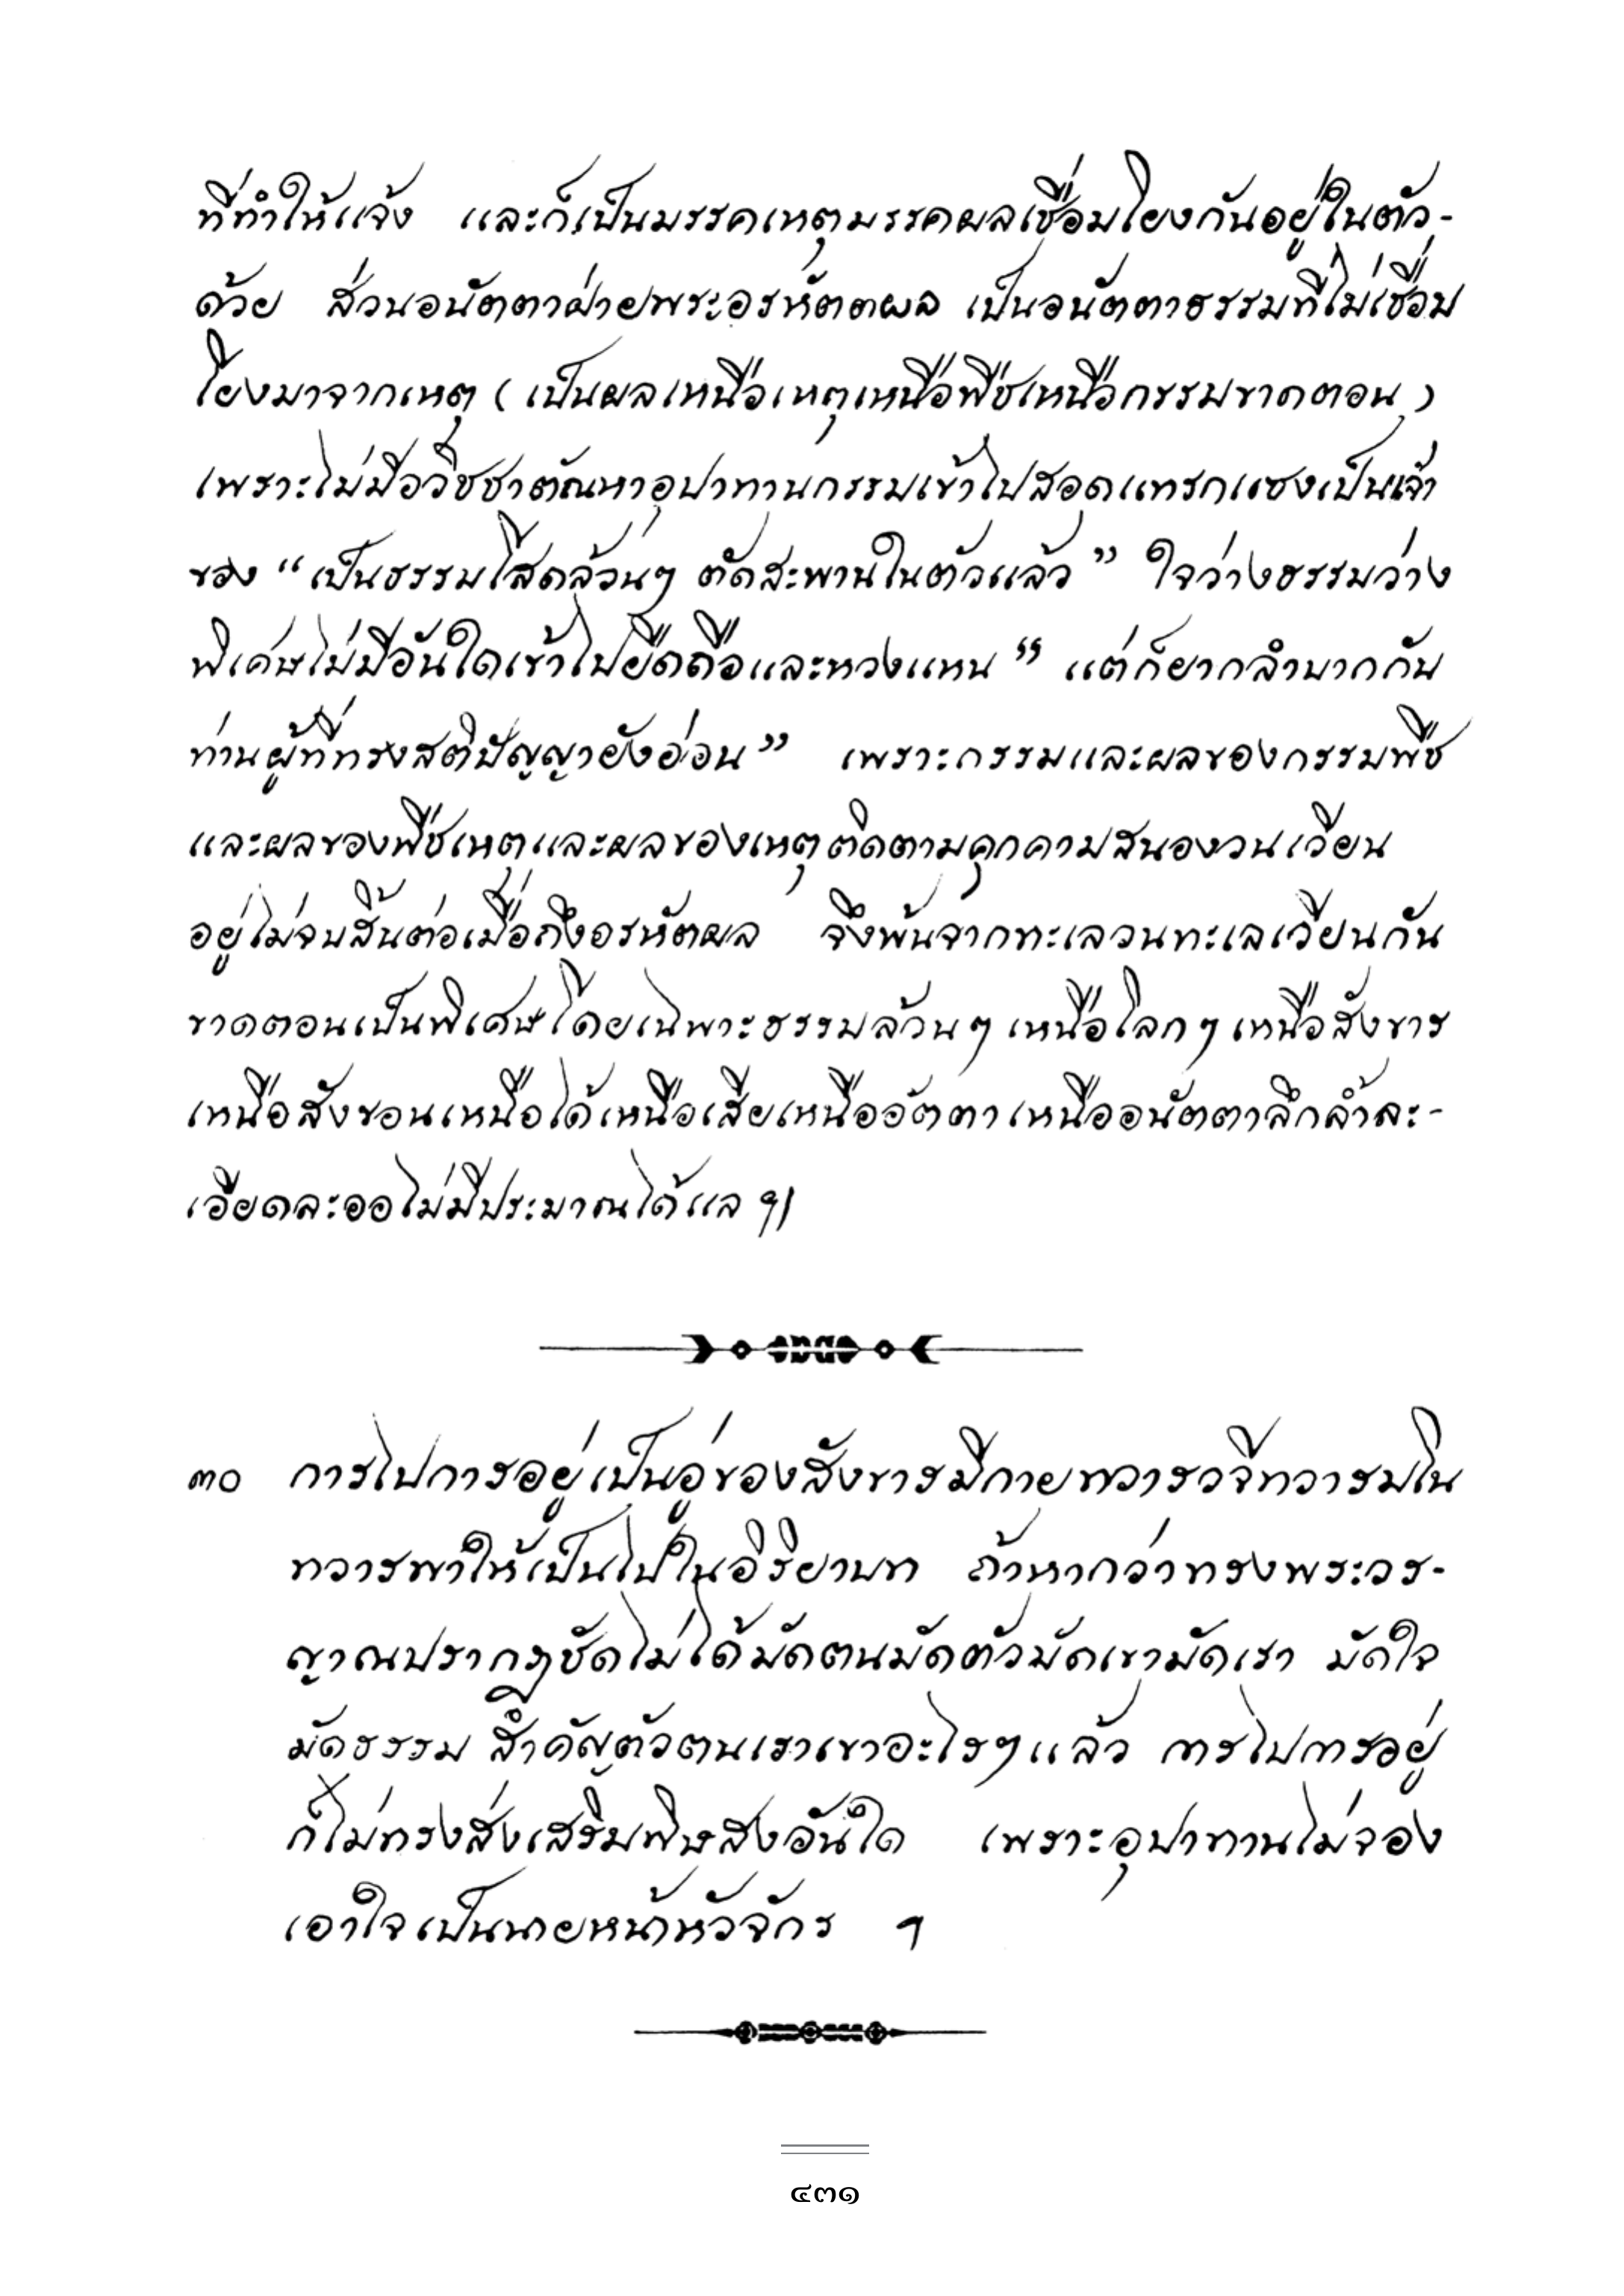 ที่ทำให้แจ้ง และก็เป็นมรรคเหตุมรรคผลเชื่อมโยงกันอยู่ในตัว-
ด้วย ส่วนอนัตตาฝ่ายพระอรหัตตผล เป็นอนัตตาธรรมที่ไม่เชื่อม
โยงมาจากเหตุ ( เป็นผลเหนือเหตุเหนือพืชเหนือกรรมขาดตอน )
เพราะไม่มีอวิชชาตัณหาอุปาทานกรรมเข้าไปสอดแทรกแซงเป็นเจ้า
ของ “ เป็นธรรมโสดล้วนๆ ตัดสะพานในตัวแล้ว ” ใจว่างธรรมว่าง
พิเศษไม่มีอันใดเข้าไปยึดถือและหวงแหน ” แต่ก็ยากลำบากกับ
ท่านผู้ที่ทรงสติปัญญายังอ่อน ” เพราะกรรมและผลของกรรมพืช
และผลของพืชเหตุและผลของเหตุติดตามคุกคามสนองวนเวียน
อยู่ไม่จบสิ้นต่อเมื่อถึงอรหัตผล จึงพ้นจากทะเลวนทะเลเวียนกัน
ขาดตอนเป็นพิเศษโดยเฉพาะธรรมล้วนๆ เหนือโลกๆ เหนือสังขาร
เหนือสังขอนเหนือได้เหนือเสียเหนืออัตตาเหนืออนัตตาลึกล้ำละ-
เอียดละออไม่มีประมาณได้แล ฯ|
๓๐ การไปการอยู่เป็นอู่ของสังขารมีกายทวารวจีทวารมโน
ทวารพาให้เป็นไปในอิริยาบท ถ้าหากว่าทรงพระวร-
ญาณปรากฏชัดไม่ได้มัดตนมัดตัวมัดเขามัดเรา มัดใจ
มัดธรรม สำคัญตัวตนเราเขาอะไรๆแล้ว การไปการอยู่
ก็ไม่ทรงส่งเสริมพิษสงอันใด เพราะอุปาทานไม่จอง
เอาใจเป็นนายหน้าหัวจักร ฯ
๔๓๑